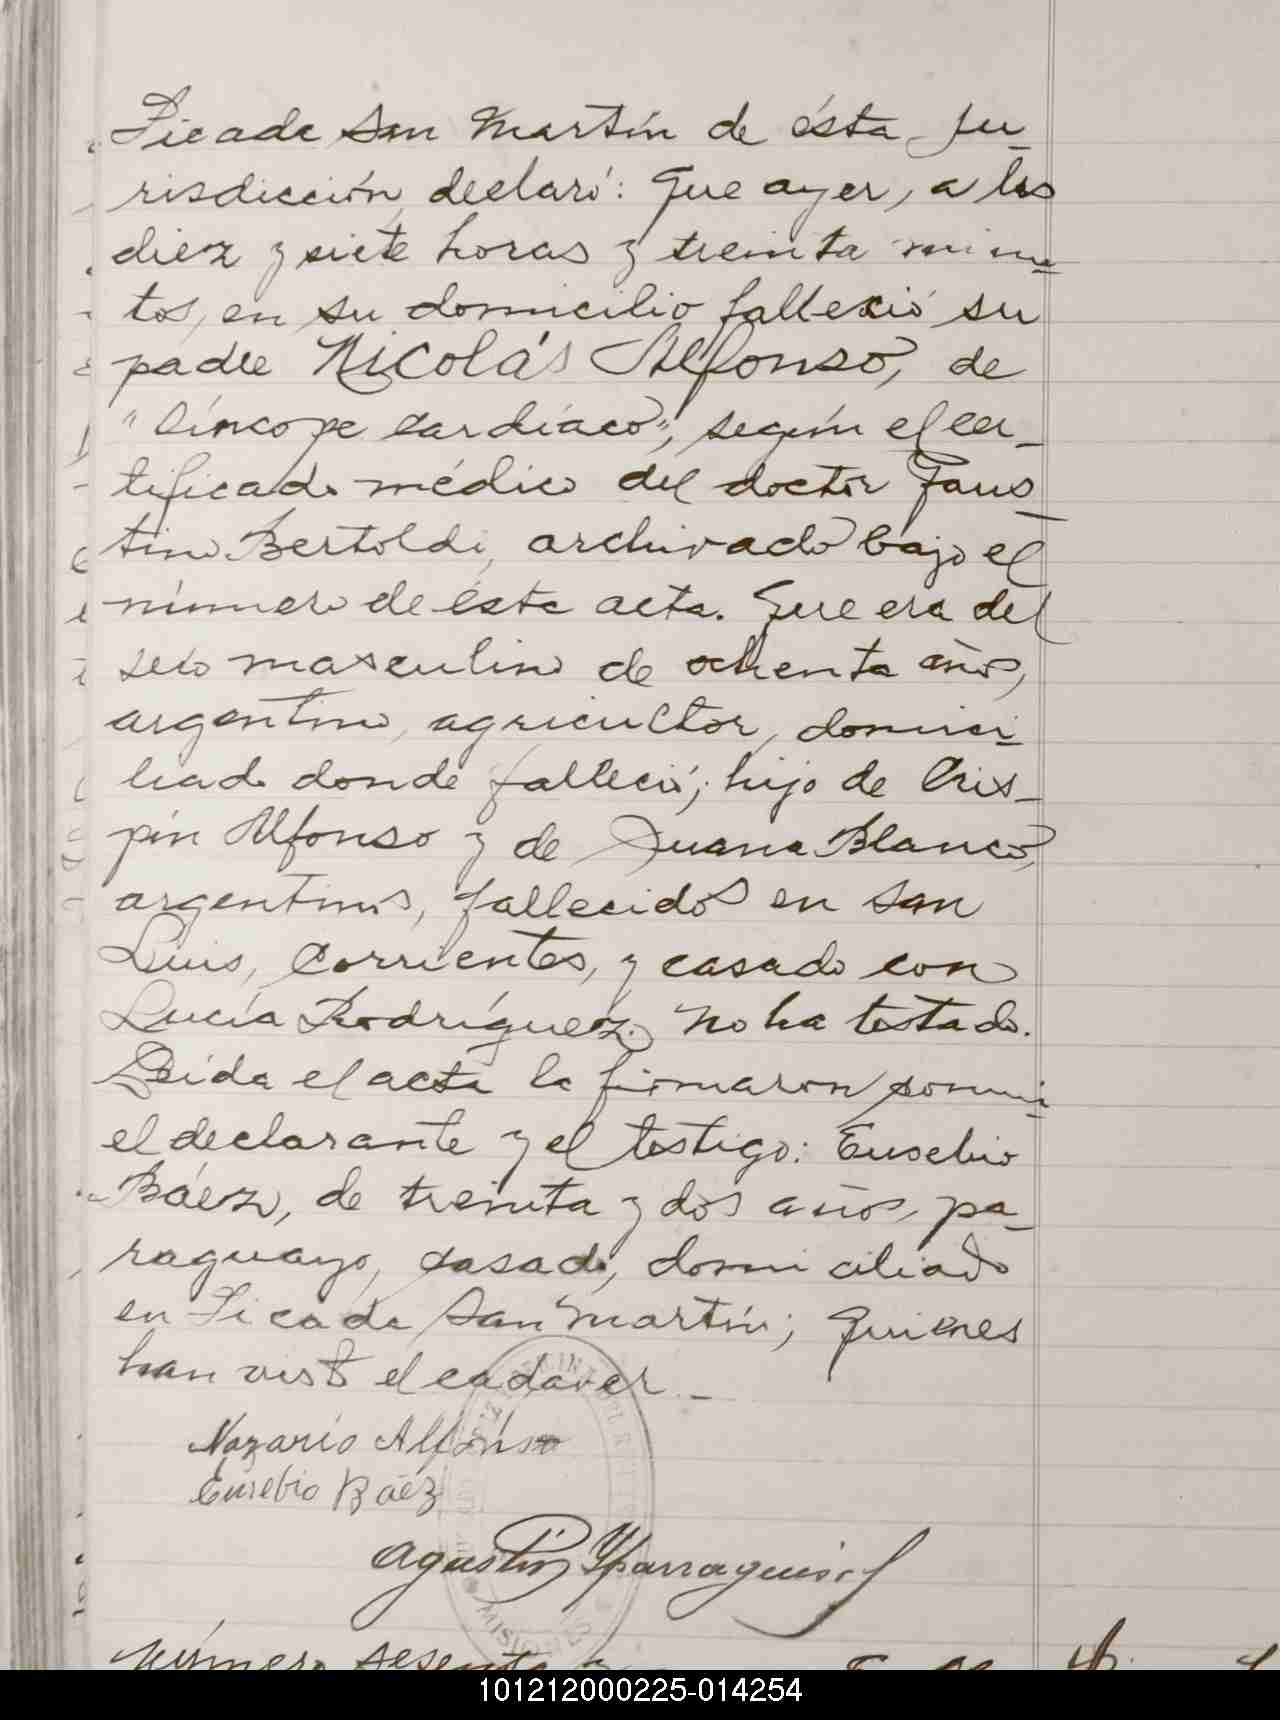 Picada San Martín de ésta ju-
risdicción, declaró: Que ayer, a las
diez y siete horas y treinta minu-
tos, en su domicilio falleció su
padre Nicolás Alfonso, de
"Síncope cardíaco", según el cer-
tificado médico del doctor Faus-
tino Bertoldi, archivado bajo el
número de ésta acta. Que era del
sexo masculino de ochenta años,
argentino, agricultor, domici-
liado donde falleció; hijo de Cris-
pín Alfonso y de Juana Blanco,
argentinos, fallecidos en San
Luis, Corrientes, y casado con
Lucía Rodríguez. No ha testado.
Leída el acta la firmaron conmi-
el declarante y el testigo: Eusebio
Báez, de treinta y dos años, pa-
raguayo, casado, domiciliado
en Picada San Martín; quienes
han visto el cadáver. -
Nazario Alfonso
Eusebio Báez
Agustín Yparraguirre
MISIONES
Número sesenta
101212000225-014254